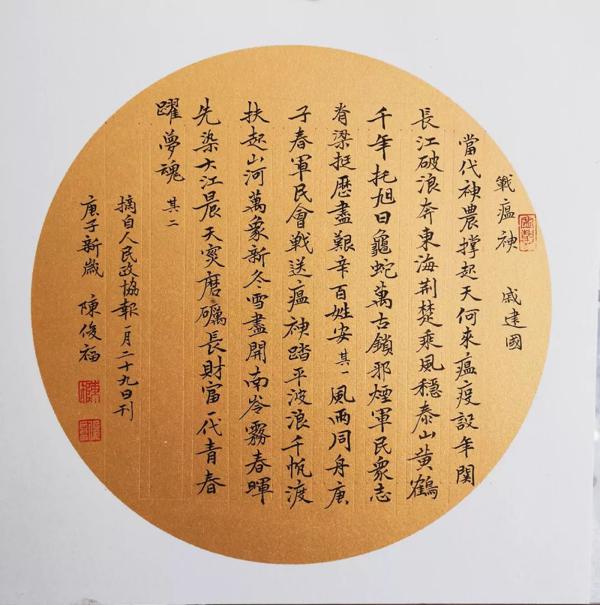 戰瘟神　戚建國
當代神農撐起天何來瘟疫設年関
長江破浪奔東海荆楚乘風穩泰山黄鶴
千年托旭日龜蛇萬古鎖邪煙軍民衆志
脊梁挺歷盡艱辛百姓安 其一 風雨同舟庚
子春軍民會戰送瘟神踏平波浪千帆渡
扶起山河萬象新冬雪盡開南岺霧春暉
先染大江晨天灾磨礪長財富一代青春
躍夢魂 其二
摘自人民政協報一月二十九日刊
庚子新歲 陳俊福